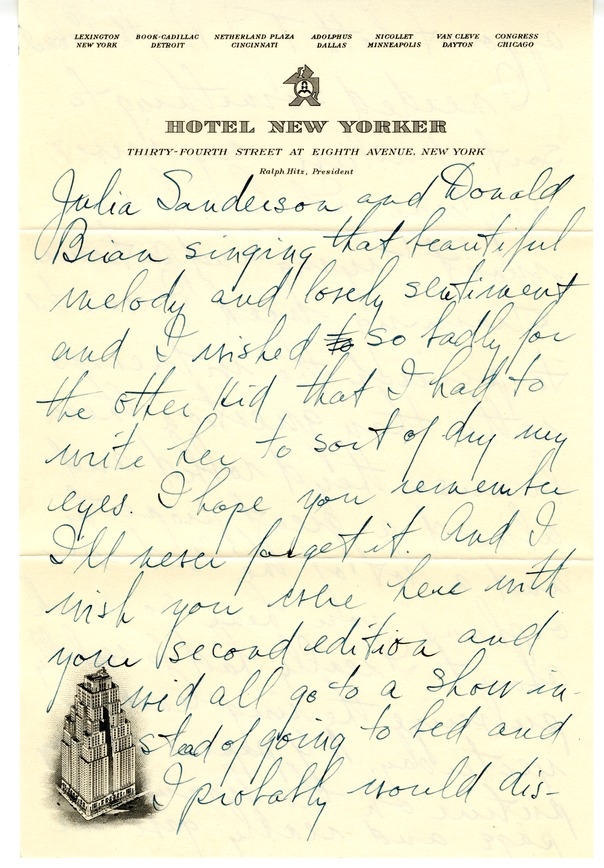 LEXINGTON BOOK-CADILLAC NETHERLAND PLAZA ADOLPHUS NICOLLET VAN CLEVE CONGRESS
NEW YORK DETROIT CINCINNATI DALLAS MINNEAPOLIS DAYTON CHICAGO
HOTEL NEW YORKER
THIRTY-FOURTH STREET AT EIGHTH AVENUE, NEW YORK
Ralph Hitz, President
Julia Sanderson and Donald
Brian singing that beautiful
melody and lovely sentiment
and I wished to so badly for
the other kid that I had to
write her to sort of dry my
eyes. I hope you remember
I'll never forget it. And I
wish you were here with
your second edition and
we'd all go to a show in-
stead of going to bed and
I probably would dis-